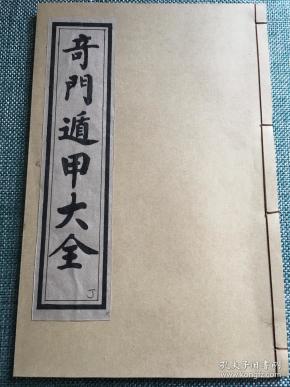 奇門遁甲大全
J
孔夫子旧书网